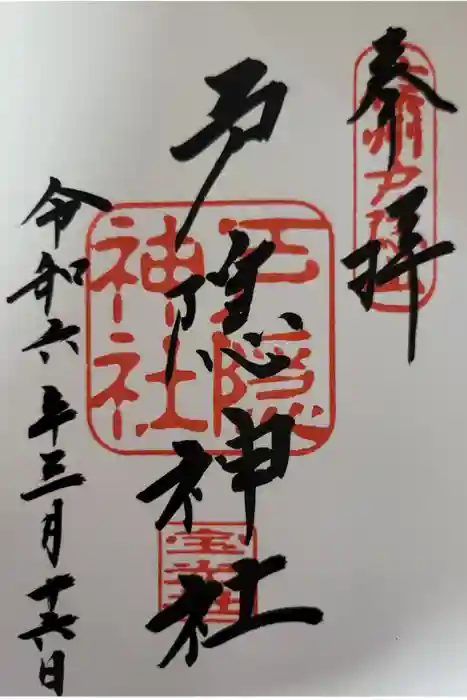 奉拝
戸隠神社
令和六年三月十六日
戸隠
神社
宝光社